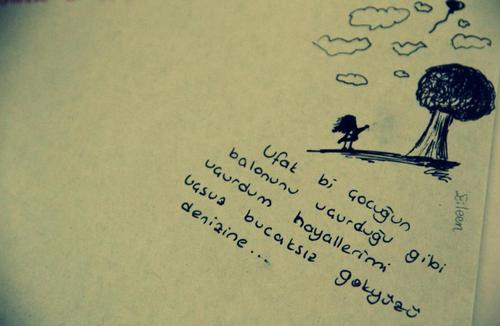 Ufak bi çocuğun
balonunu uçurduğu gibi
uçurdum hayallerimi
uçsuz bucaksız gökyüzü
denizine...
Eileen